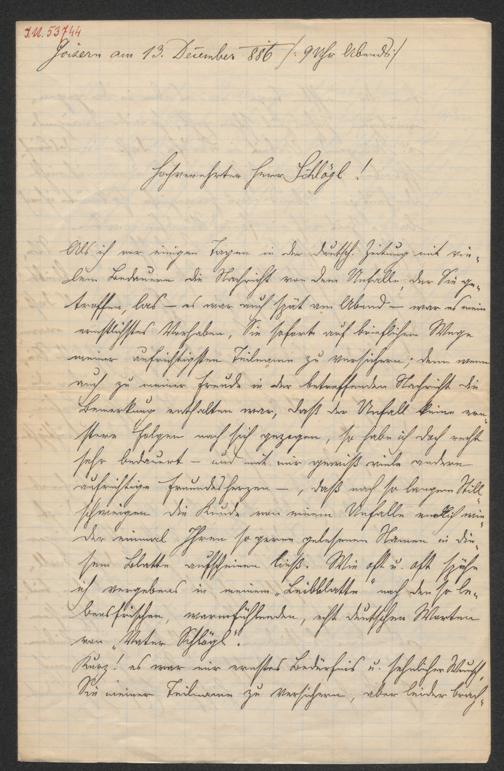 I.N. 53744
Goisern am 13. December 886 /: 9 Uhr Abends :/
Hochverehrter Herr Schlögl!
Als ich vor einigen Tagen in der deutsch. Zeitung mit vie-
lem Bedauern die Nachricht von dem Unfalle, der Sie ge-
troffen, las – es war auch spät am Abend – war es mein
ernstlichstes Vorhaben, Sie sofort auf brieflichem Wege
meiner aufrichtigsten Teilname zu versichern; denn wenn
auch zu meiner Freude in der betreffenden Nachricht die
Bemerkung enthalten war, daß der Unfall keine ern-
stere Folgen nach sich gezogen, so habe ich doch recht
sehr bedauert – und mit mir gewiß viele andere
aufrichtige Freundesherzen –, daß nach so langem Still-
schweigen die Kunde von einem Unfalle endlich wie-
der einmal Ihren so gerne gelesenen Namen in die-
sem Blatte aufscheinen ließ. Wie oft u. oft spähe
ich vergebens in meinem „Leibblatte" nach den so le-
bensfrischen, warmfühlenden, echt deutschen Worten
von „Vater Schlögl".
Kurz! es war mir ernstes Bedürfnis u. sehnlicher Wunsch,
Sie meiner Teilname zu versichern, aber leider brach-